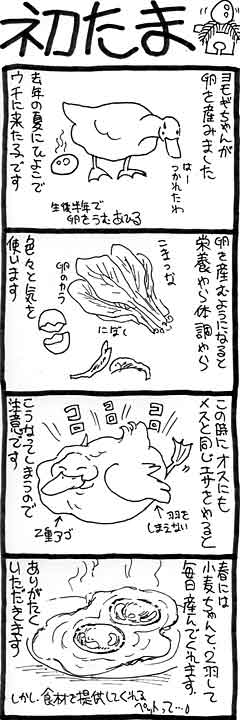 初たま
ヨモギちゃんが
卵を産みました
はー
つかれたわ
去年の夏にひよこで
ウチに来た子です
生後半年で
卵をうむあひる
卵を産むようになると
栄養やら体調やら
こまつな
にぼし
卵のカラ
色々と気を
使います
この時にオスにも
メスと同じエサをやると
コロ
コロ
コロ
羽を
しまえない
2重アゴ
こうなってしまうので
注意です
春には
小麦ちゃんと、2羽して
毎日産んでくれます
ありがたく
いただきます
しかし、食材で提供してくれる
ペットって…。